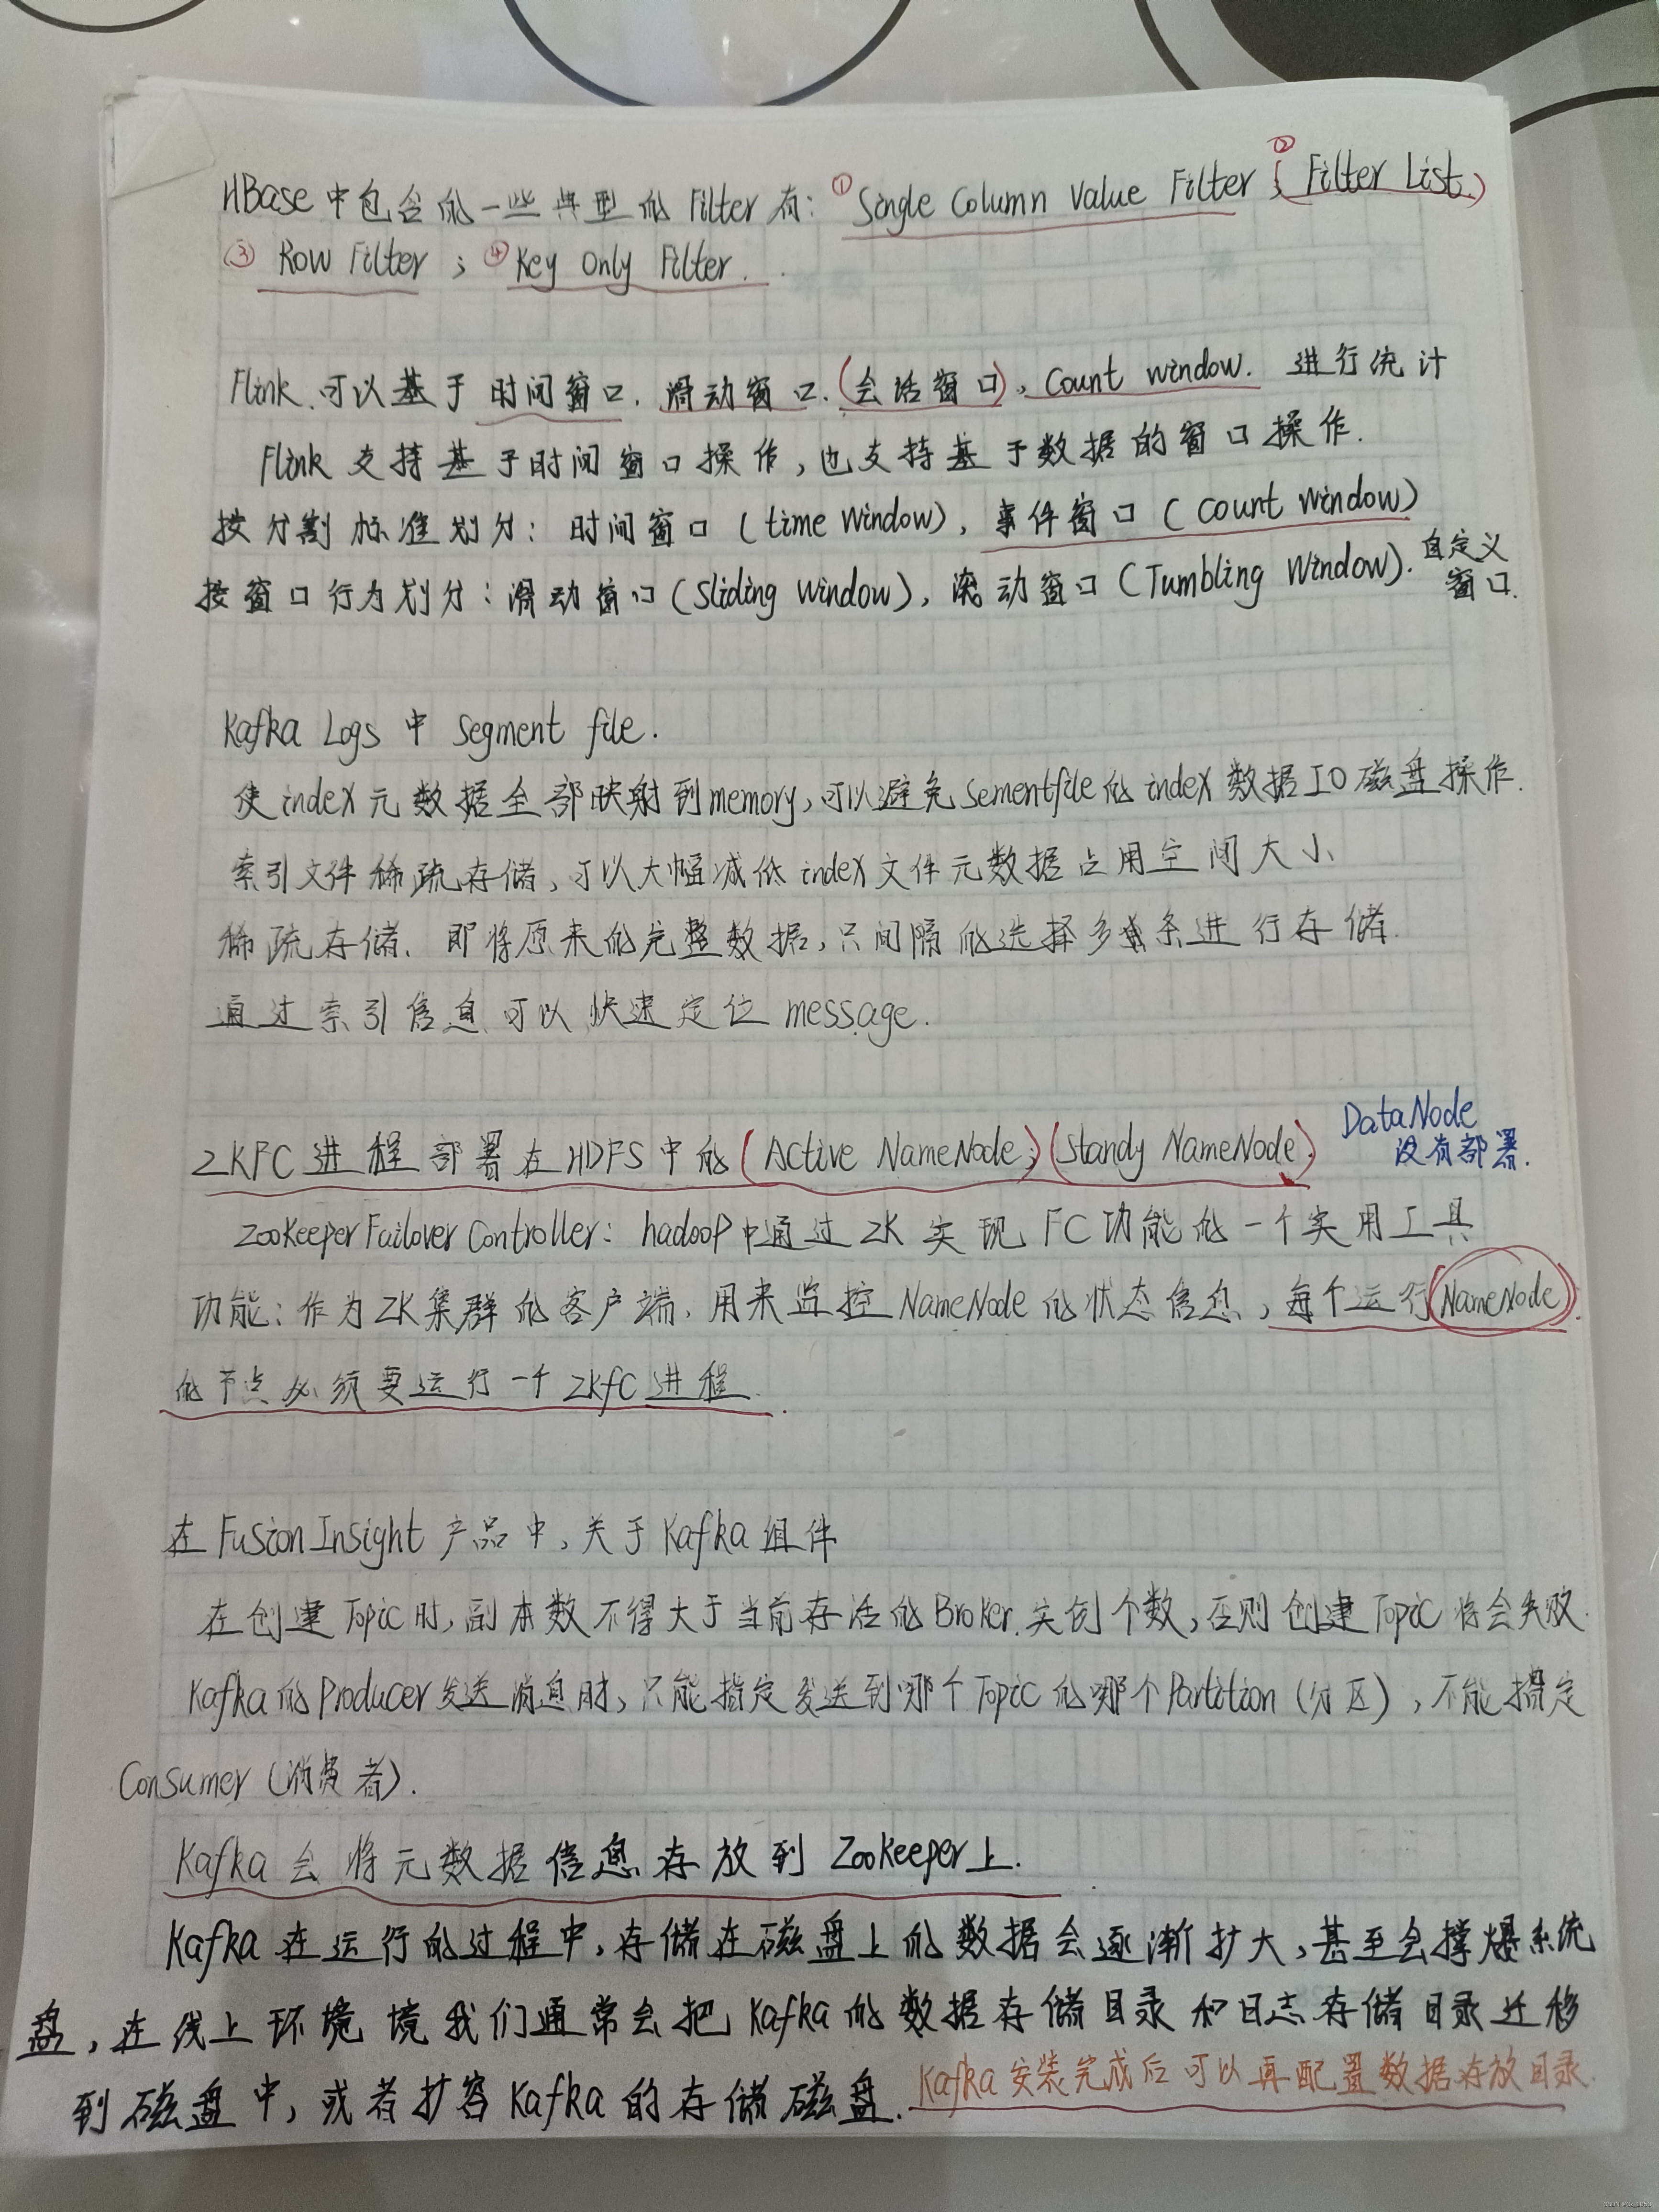 HBase中包含的一些典型的Filter有：①Single Column Value Filter；②Filter List.
③ Row Filter；④Key Only Filter.
Flink、可以基于时间窗口.滑动窗口.(会话窗口)、Count window. 进行统计
Flink 支持基于时间窗口操作,也支持基于数据的窗口操作.
按分割标准划分：时间窗口(time Window),事件窗口(Count Window)
按窗口行为划分：滑动窗口(Sliding Window),滚动窗口(Tumbling Window).自定义
窗口.
Kafka Logs 中 Segment file.
使index元数据全部映射到memory,可以避免Sementfile的index数据IO磁盘操作.
索引文件稀疏存储,可以大幅减低index文件元数据占用空间大小
稀疏存储.即将原来的完整数据,只间隔的选择多条进行存储.
通过索引信息可以快速定位message.
ZKFC进程部署在HDFS中的(Active NameNode;)(Standy NameNode). DataNode
没有部署.
ZooKeeper Failover Controller：hadoop中通过ZK实现FC功能的一个实用工具
功能：作为ZK集群的客户端,用来监控NameNode的状态信息,每个运行NameNode
的节点必须要运行一个Zkfc进程.
在FusionInsight产品中,关于Kafka组件
在创建Topic时,副本数不得大于当前存活的Broker.实例个数,否则创建Topic将会失败.
Kafka的Producer发送消息时,只能指定发送到哪个Topic的哪个Partition(分区),不能指定
Consumer(消费者).
Kafka会将元数据信息存放到Zookeeper上.
Kafka在运行的过程中,存储在磁盘上的数据会逐渐扩大,甚至会撑爆系统
盘,在线上环境境我们通常会把Kafka的数据存储目录和日志存储目录迁移
到磁盘中,或者扩容Kafka的存储磁盘.Kafka安装完成后可以再配置数据存放目录.